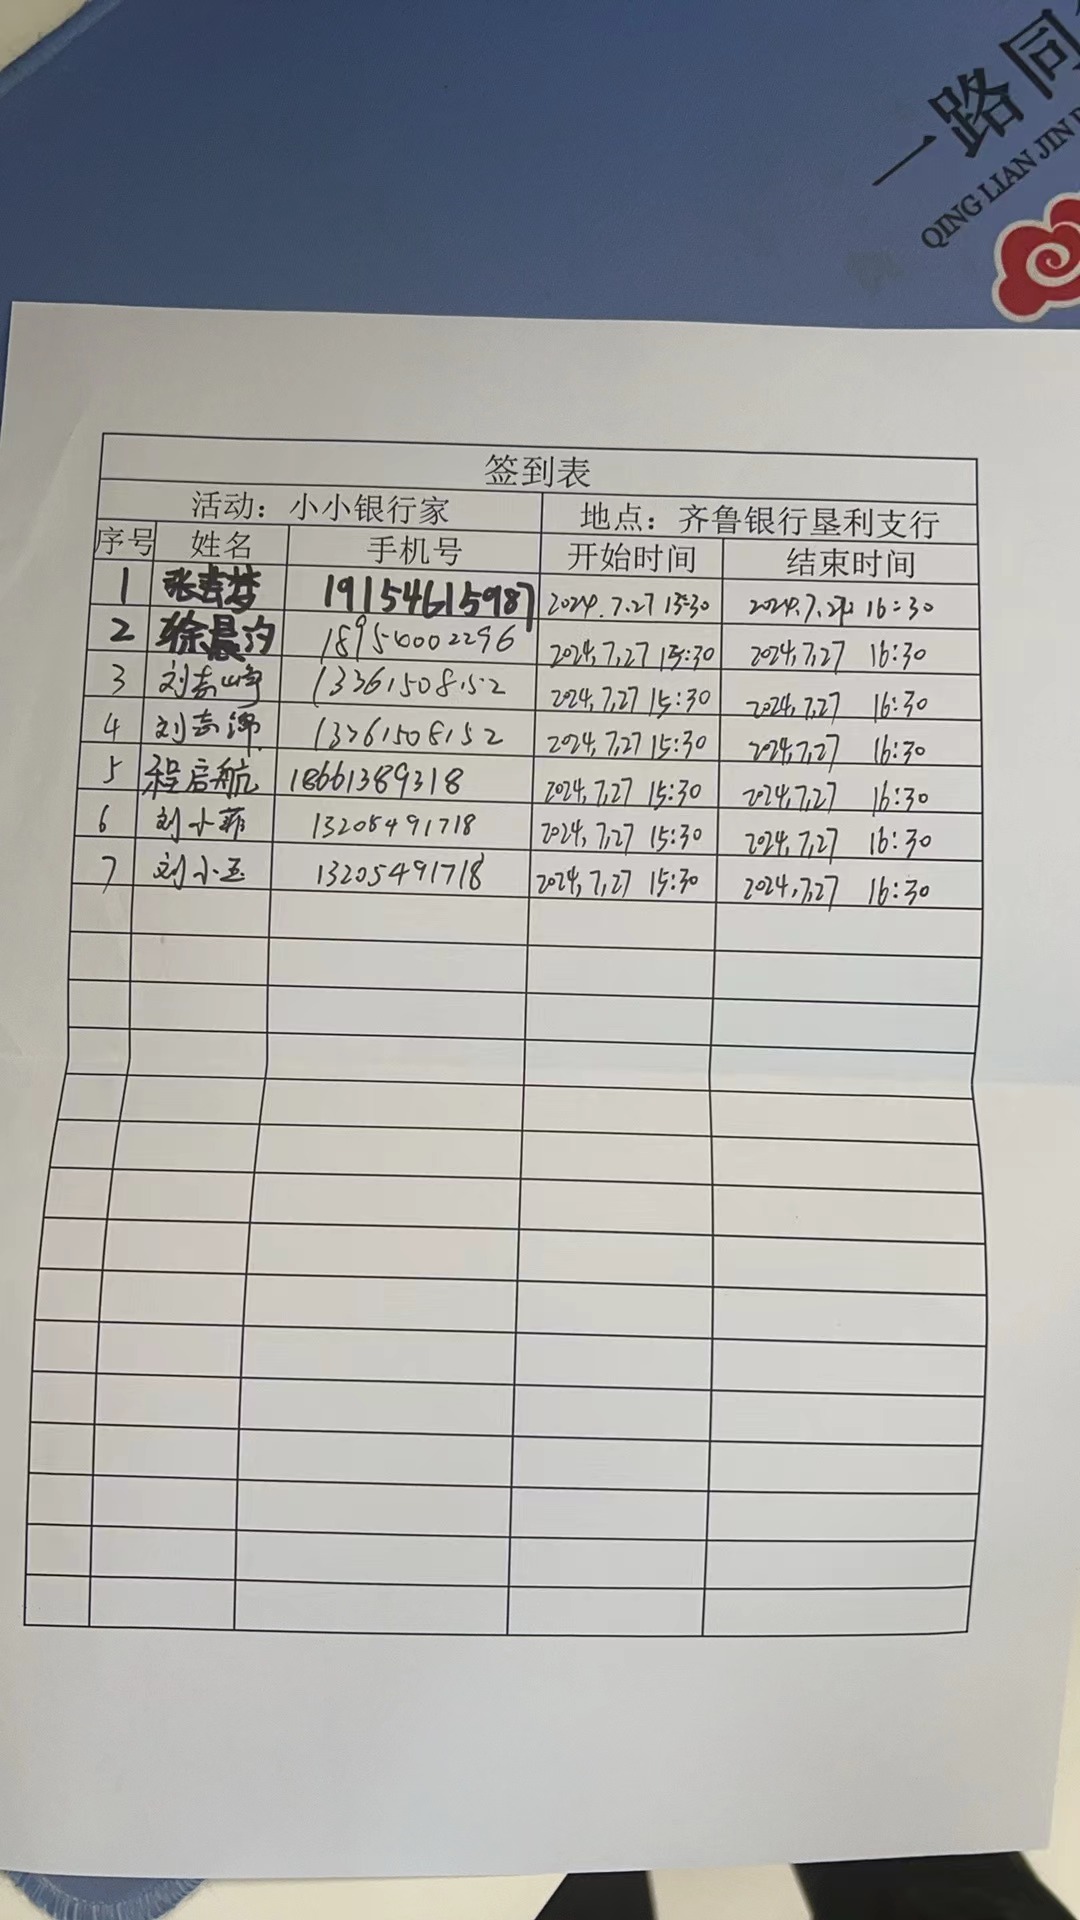 一路同
QING LIAN JIN
签到表
活动：小小银行家 地点：齐鲁银行垦利支行
序号 姓名 手机号 开始时间 结束时间
1 19154615987 2024.7.27 15:30 2024.7.27 16:30
2 徐晨汐 18954002296 2024.7.27 15:30 2024.7.27 16:30
3 刘志峰 13361508152 2024.7.27 15:30 2024.7.27 16:30
4 刘 13361508152 2024.7.27 15:30 2024.7.27 16:30
5 程启航 18661389318 2024.7.27 15:30 2024.7.27 16:30
6 刘小菲 13205491718 2024.7.27 15:30 2024.7.27 16:30
7 刘小玉 13205491718 2024.7.27 15:30 2024.7.27 16:30